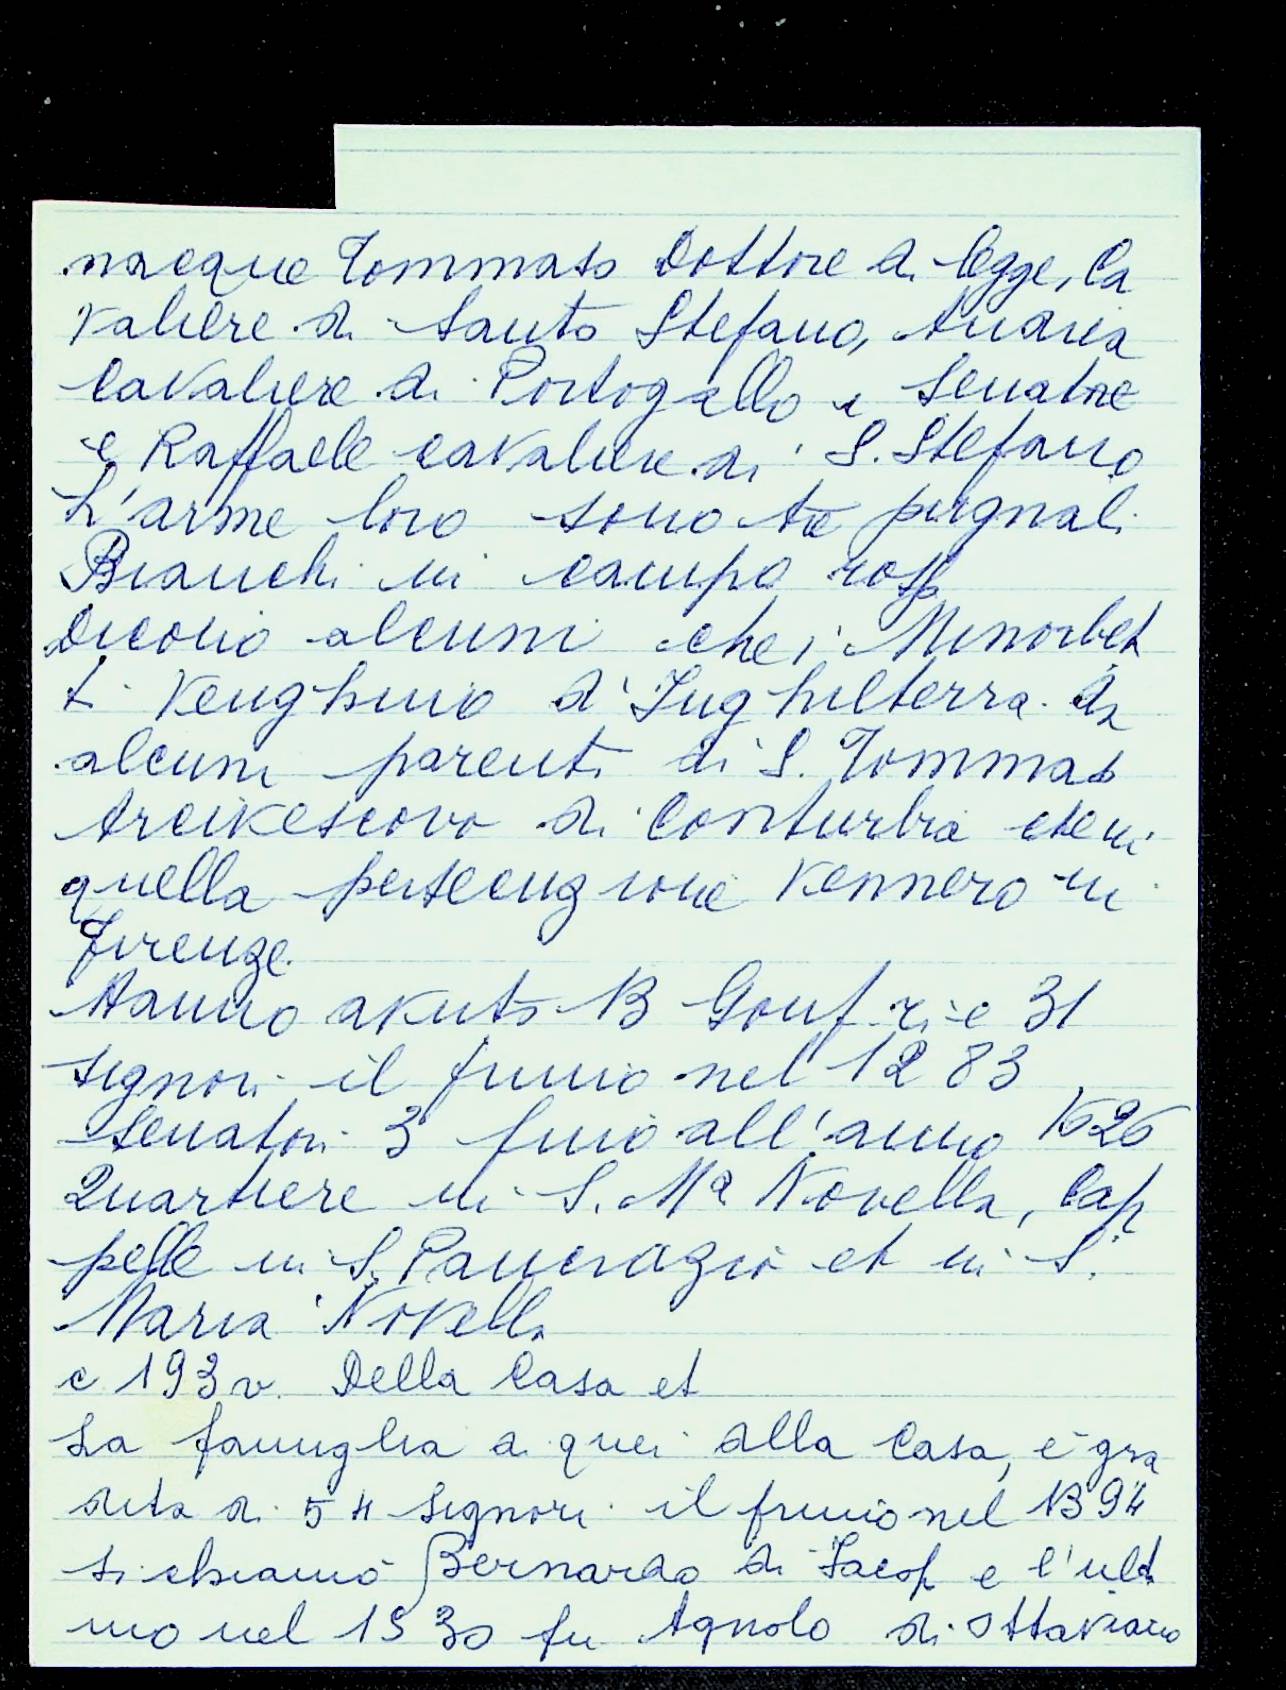 nacque Tommaso Dottore di legge, Ca
valiere di Santo Stefano, Andrea
Cavaliere di Portogallo e Senatore
e Raffaele cavaliere di S. Stefano
L'arme loro sono tre pugnali
Bianchi in campo rosso
Dicono alcuni che i Minorbet
ti venghino d'Inghilterra da
alcuni parenti di S. Tommaso
Arcivescovo di Conturbia che in
quella persecuzione vennero in
Firenze.
Hanno avuto 13 Gonf.ri e 31
signori il primo nel 1283
Senatori 3 fino all'anno 1626
Quartiere in S. Mª Novella, Cap
pelle in S. Pancrazio et in S.
Maria Novella
c 193 v. Della Casa et
La famiglia di quei della Casa, è gra
dita di 54 signori il primo nel 1394
si chiamò Bernardo di Jacop e l'ult
mo nel 1530 fu Agnolo di Ottaviano